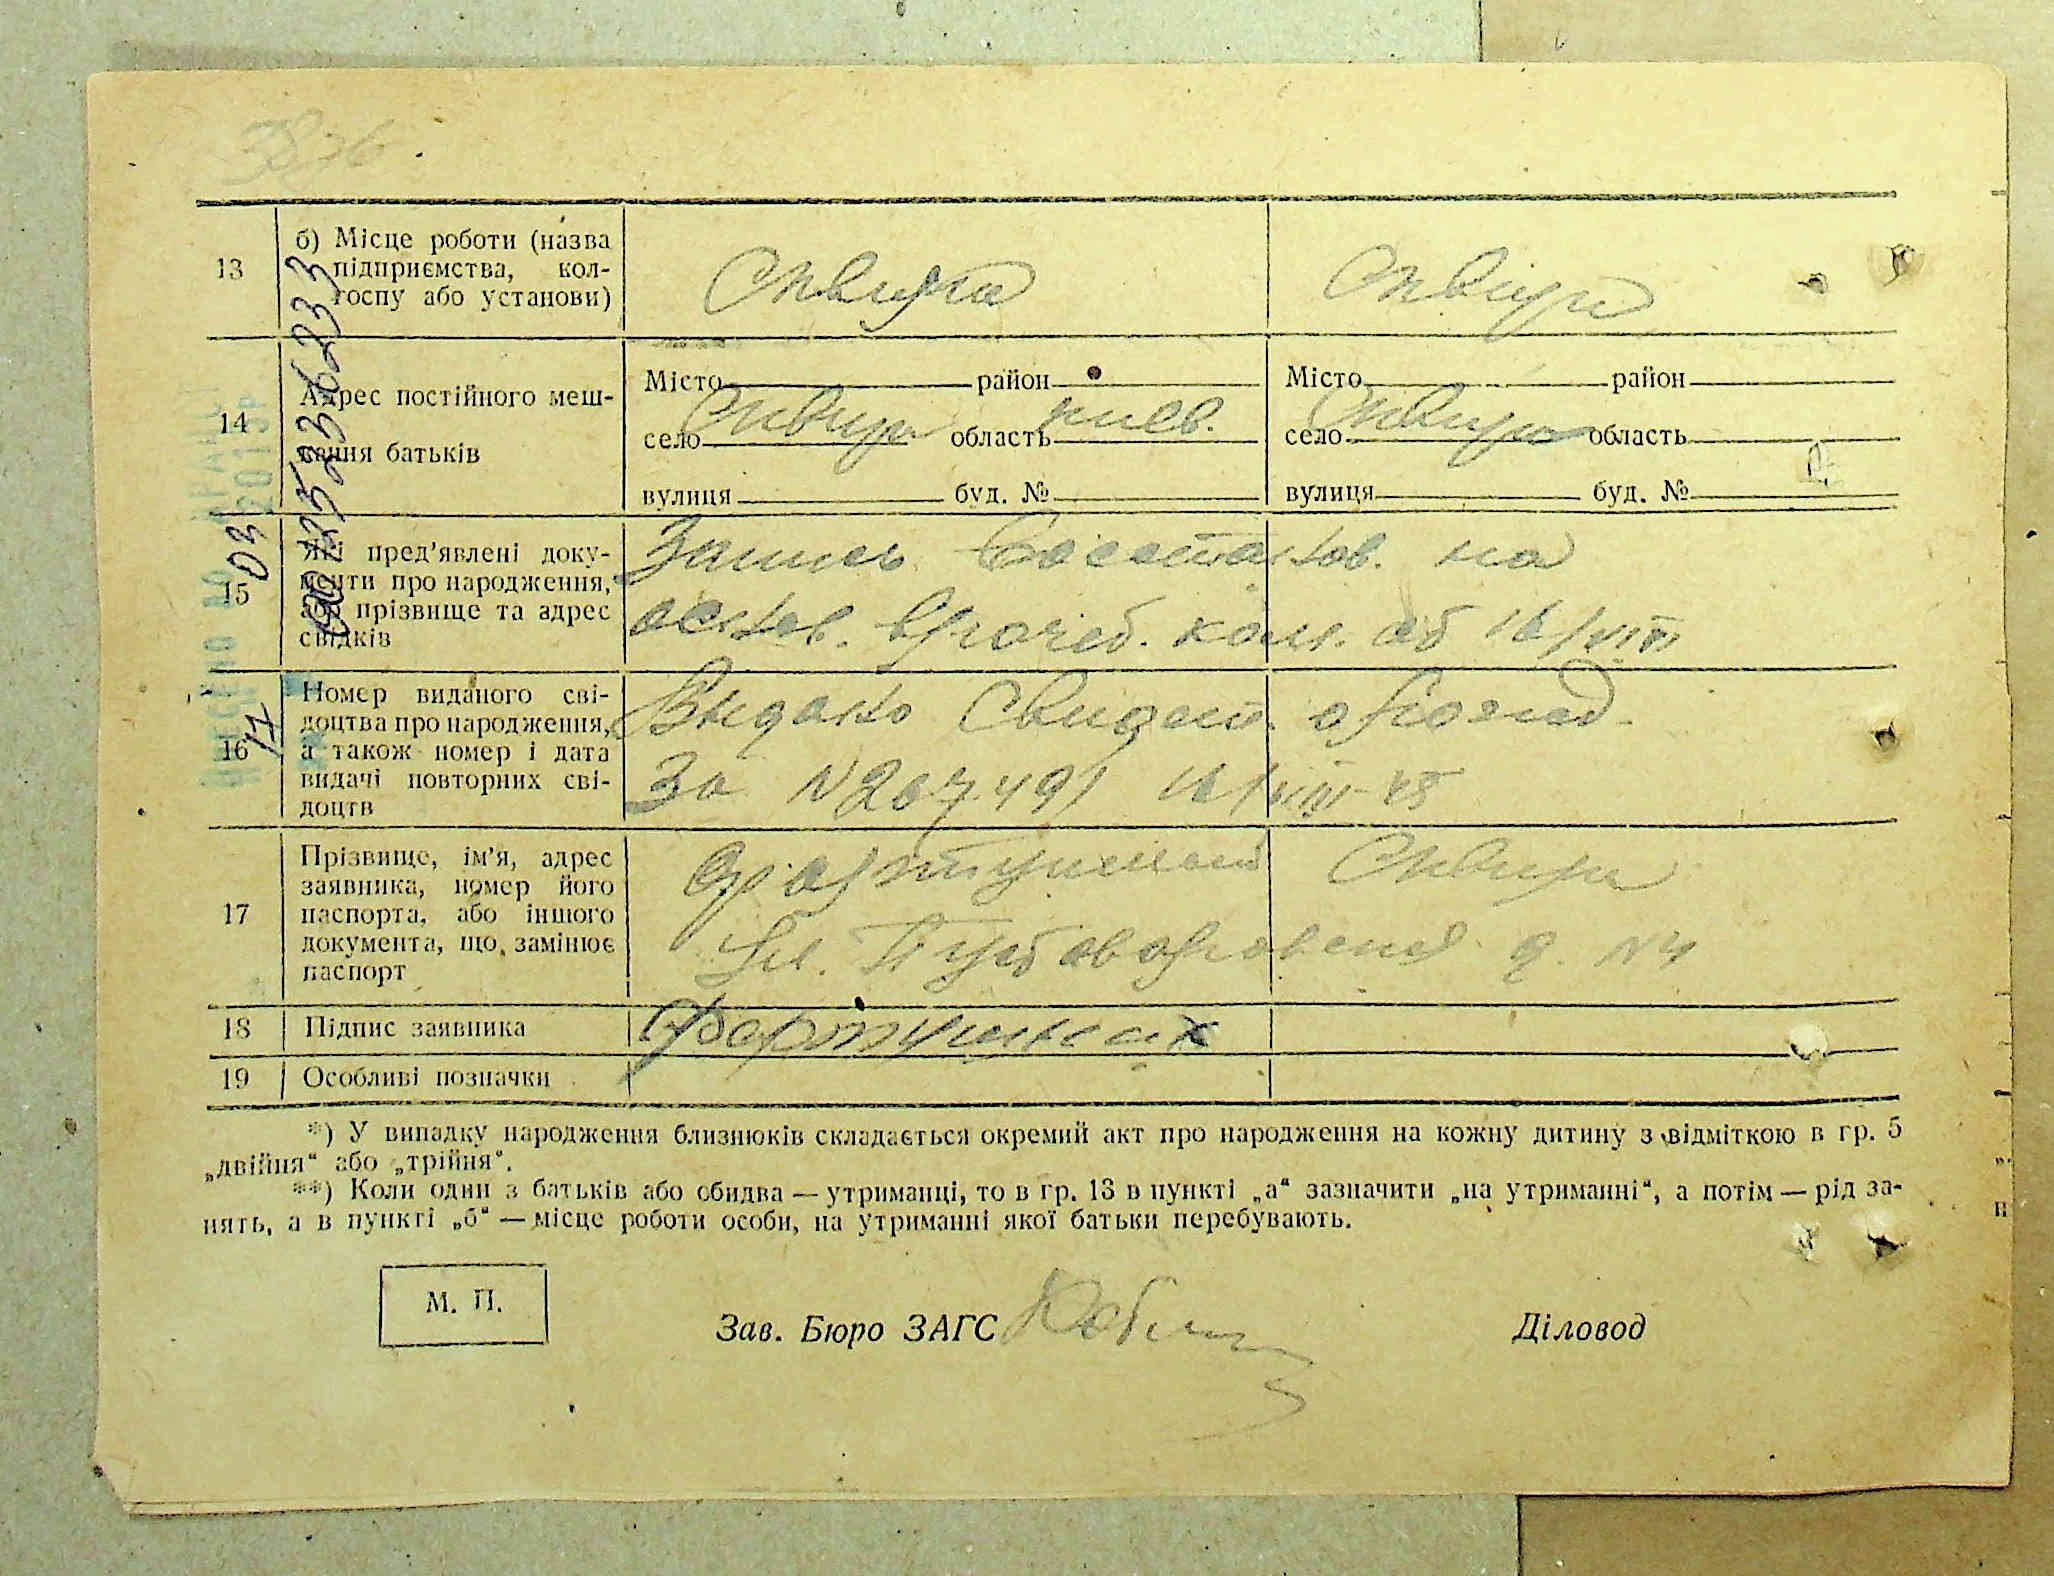 13
б) Місце роботи (назва
підприємства, кол-
госпу або установи)
Сквира
Сквира
14
Адрес постійного меш-
кання батьків
Місто район
село Сквира область киев.
вулиця буд. №
Місто район
село Сквира область
вулиця буд. №
15
Які пред’явлені доку-
менти про народження,
або прізвище та адрес
свідків
Запись на
врачеб. ком. 16/VIII
16
Номер виданого сві-
доцтва про народження,
а також номер і дата
видачі повторних сві-
доцтв
Выдано Свидет. о рожд.
За N 267491 16/VIII-45
17
Прізвище, ім’я, адрес
заявника, номер його
паспорта, або іншого
документа, що замінює
паспорт
Сквира
Ул. д. N4
18
Підпис заявника
19
Особливі позначки
*) У випадку народження близнюків складається окремий акт про народження на кожну дитину з відміткою в гр. 5
„двійня“ або „трійня“.
**) Коли один з батьків або обидва — утриманці, то в гр. 13 в пункті „а“ зазначити „на утриманні“, а потім — рід за-
нять, а в пункті „б“ — місце роботи особи, на утриманні якої батьки перебувають.
М. П.
Зав. Бюро ЗАГС
Діловод
17 03